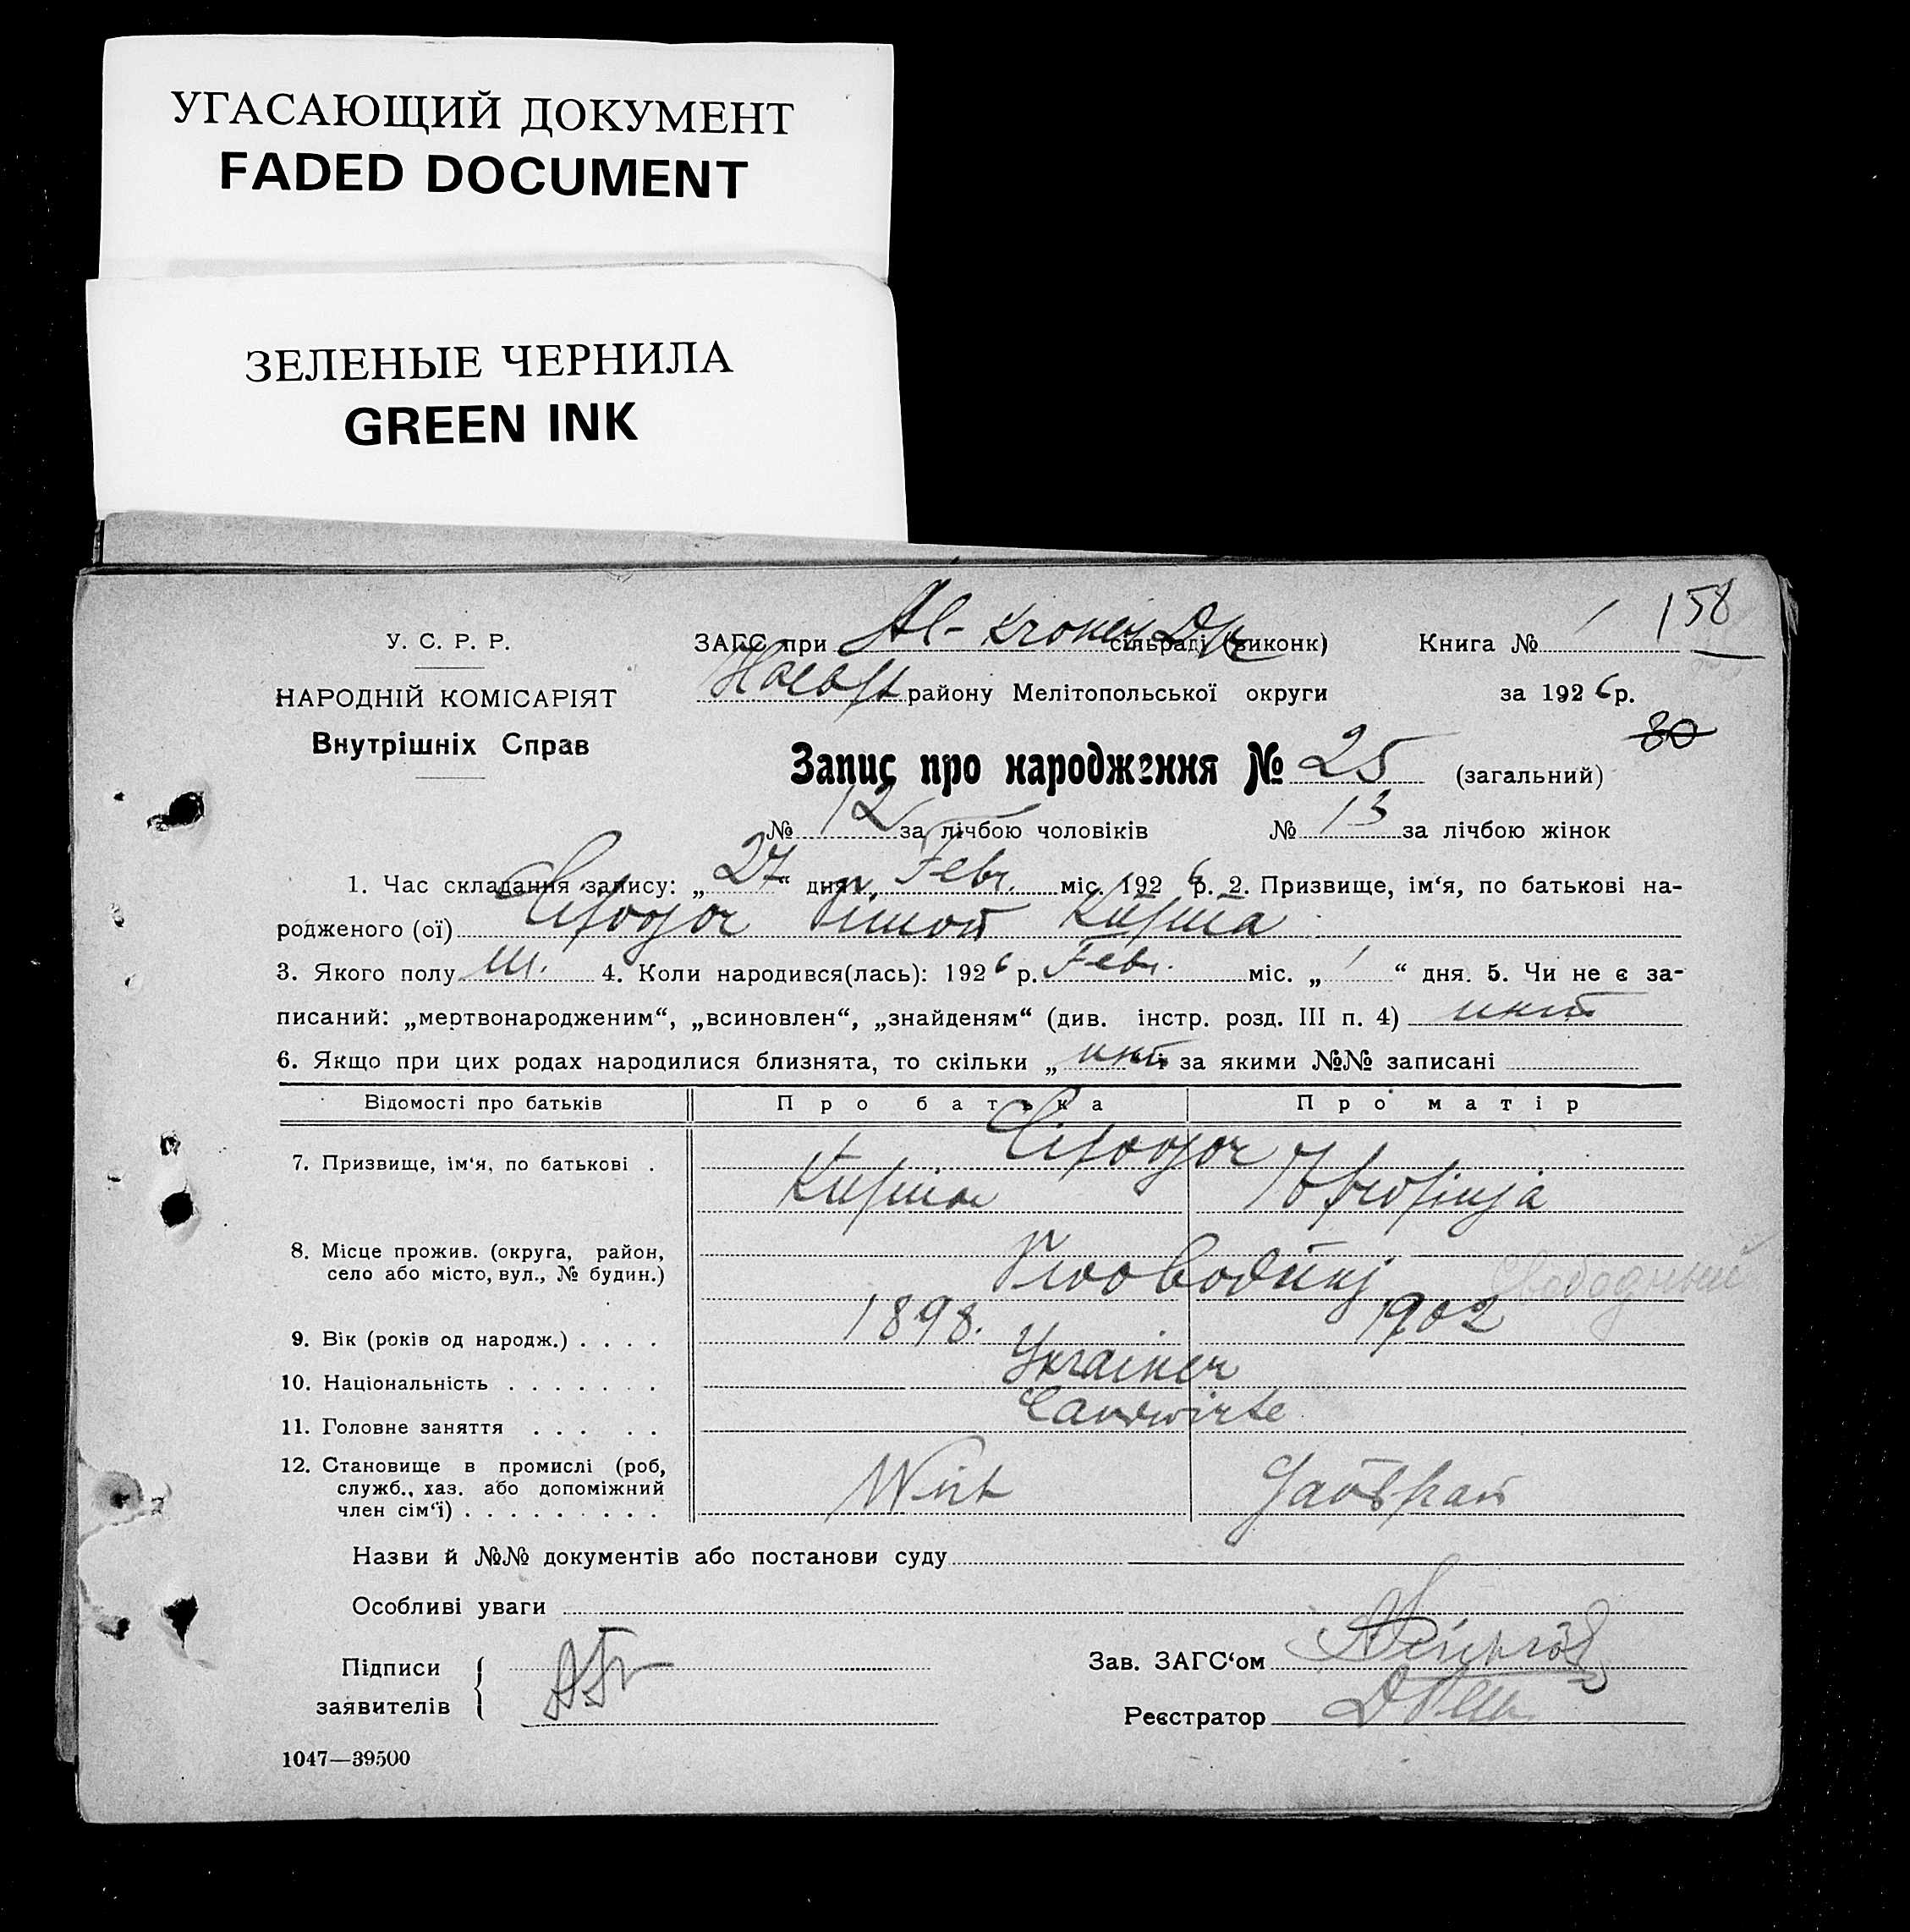 УГАСАЮЩИЙ ДОКУМЕНТ
FADED DOCUMENT
ЗЕЛЕНЫЕ ЧЕРНИЛА
GREEN INK
158
У. С. Р. Р.
ЗАГС при сільраді (виконк) Книга №
НАРОДНІЙ КОМІСАРІЯТ
району Мелітопольської округи за 1926 р.
Внутрішніх Справ
80
Запис про народження № 25 (загальний)
№ 12 за лічбою чоловіків № 13 за лічбою жінок
1. Час складання запису: „27“ дня Febr. міс. 1926 р. 2. Призвище, ім‘я, по батькові на-
родженого (ої)
3. Якого полу m. 4. Коли народився(лась): 1926 р. Febr. міс. „1“ дня. 5. Чи не є за-
писаний: „мертвонародженим“, „всиновлен“, „знайденям“ (див. інстр. розд. III п. 4)
6. Якщо при цих родах народилися близнята, то скільки „ “ і за якими №№ записані
Відомості про батьків Про батька Про матір
7. Призвище, ім‘я, по батькові .
8. Місце прожив. (округа, район,
село або місто, вул., № будин.)
Свободный
9. Вік (років од народж.) . . . . 1898. 1902
10. Національність . . . . . . . Ukrainer
11. Головне заняття . . . . . Landwirte
12. Становище в промислі (роб,
служб., хаз. або допоміжний
член сім‘ї) . . . . . . . . . Wirt Hausfrau
Назви й №№ документів або постанови суду
Особливі уваги
Підписи
заявителів
Зав. ЗАГС‘ом
Реєстратор
1047—39500